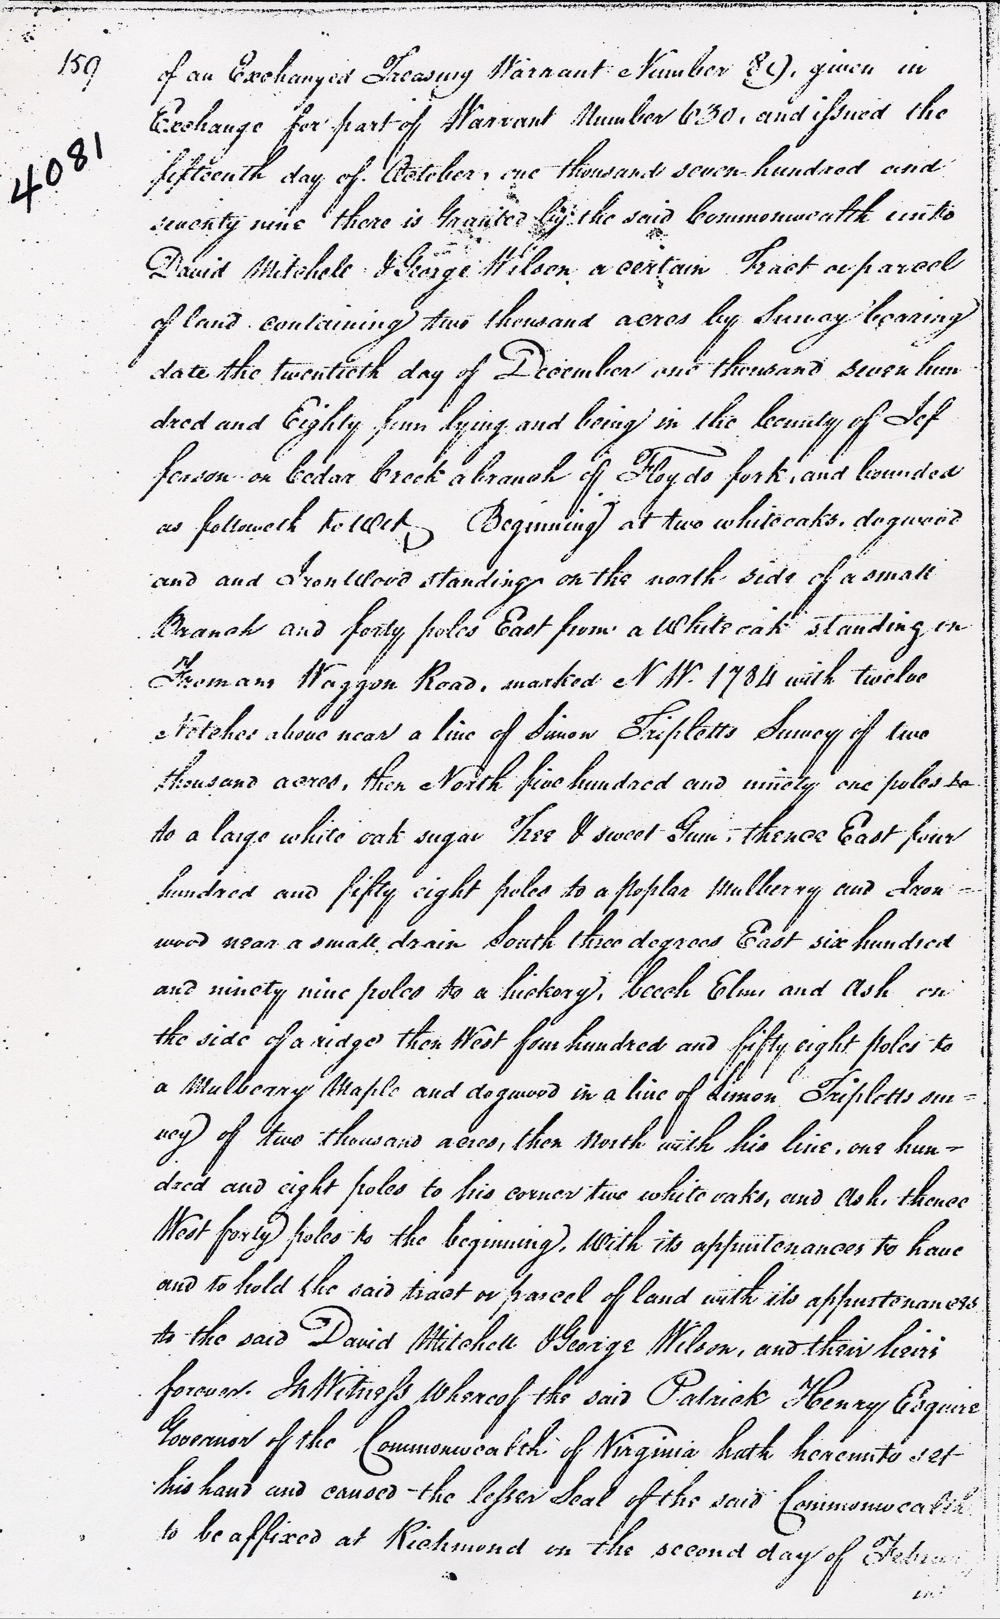 159
4081
of an Exchanged Treasury Warrant Number 89, given in
Exchange for part of Warrant Number 630, and issued the
fifteenth day of October, one thousand seven hundred and
seventy nine there is Granted by the said Commonwealth unto
David Mitchell & George Wilson a certain Tract or parcel
of land containing two thousand acres by Survey bearing
date the twentieth day of December one thousand seven hun
dred and Eighty four lying and being in the County of Jef
ferson on Cedar Creek a branch of Floyds fork, and bounded
as followeth to Wit, Beginning at two white oaks, dogwood
and and Iron Wood standing on the north side of a small
Branch and forty poles East from a White oak standing on
Fromans Waggon Road, marked N W. 1784 with twelve
Notches above near a line of Simon Tripletts Survey of two
thousand acres, then North five hundred and ninety one poles to
to a large white oak sugar Tree & sweet Gum, thence East four
hundred and fifty eight poles to a Poplar Mulberry and Iron =
wood near a small drain South three degrees East six hundred
and ninety nine poles to a hickory, beech Elm, and Ash on
the side of a ridge then West four hundred and fifty eight poles to
a Mulberry Maple and dogwood in a line of Simon Tripletts sur =
vey of two thousand acres, then North with his line, one hun-
dred and eight poles to his corner two white oaks, and Ash, thence
West forty poles to the beginning, With its appurtenances to have
and to hold the said tract or parcel of land with its appurtenances
to the said David Mitchell & George Wilson, and their heirs
forever. In Witness Whereof the said Patrick Henry Esquire
Governor of the Commonwealth of Virginia hath hereunto set
his hand and caused the lesser Seal of the said Commonwealth
to be affixed at Richmond on the second day of February